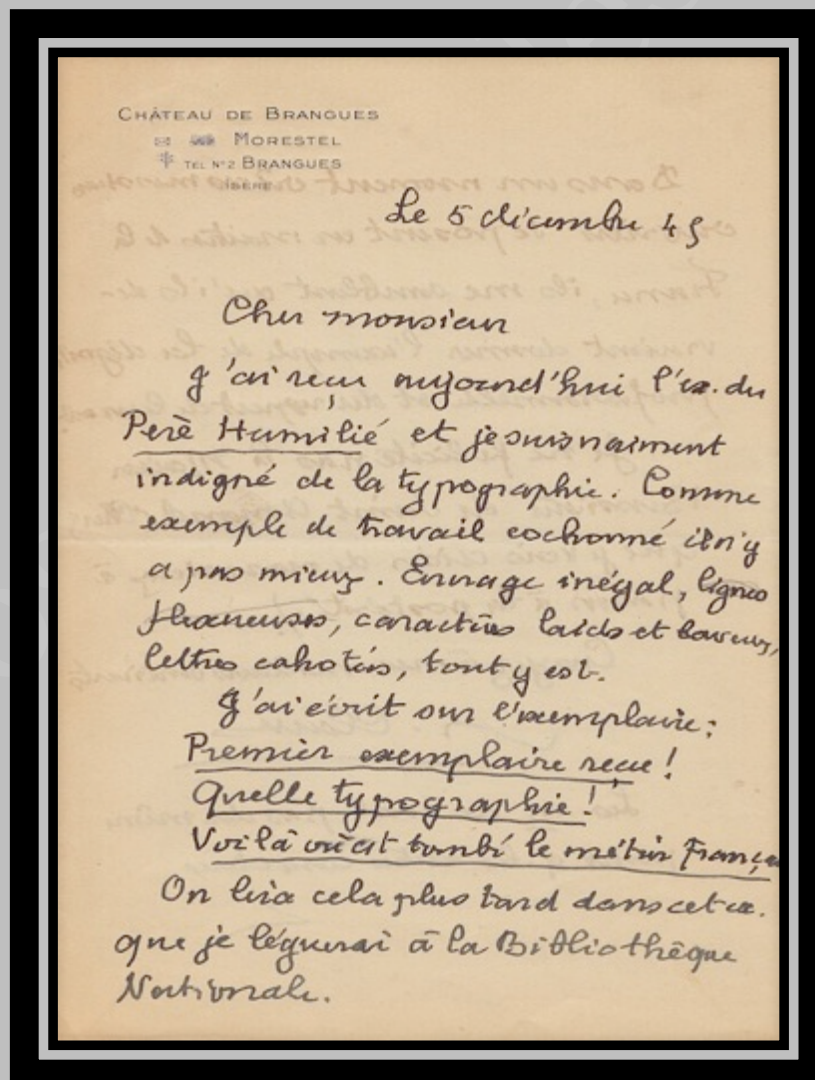 CHÂTEAU DE BRANGUES
MORESTEL
TEL N°2 BRANGUES
ISÈRE
Le 5 décembre 45
Cher monsieur
J'ai reçu aujourd'hui l'ex. du
Père Humilié et je suis vraiment
indigné de la typographie. Comme
exemple de travail cochonné il n'y
a pas mieux. Encrage inégal, lignes
, caractères laids et baveux,
lettres cahotés, tout y est.
J'ai écrit sur l'exemplaire :
Premier exemplaire reçu !
Quelle typographie !
Voilà où est tombé le métier França
On lira cela plus tard dans cet ex.
que je léguerai à la Bibliothèque
Nationale.